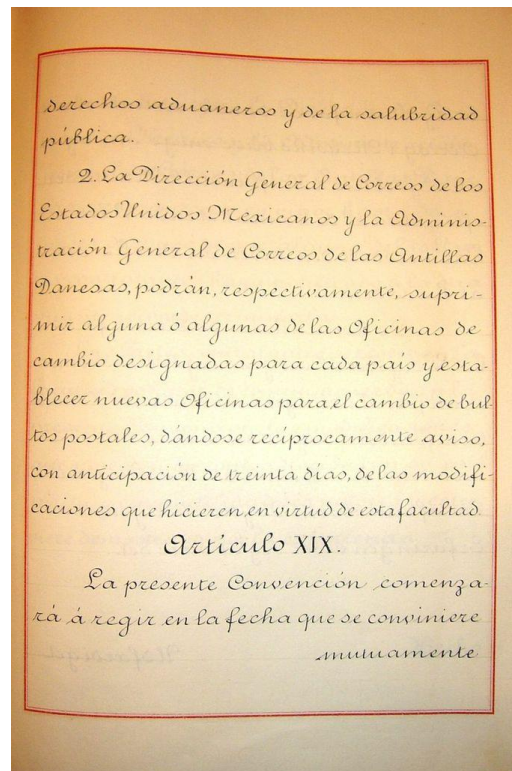 derechos aduaneros y de la salubridad
pública.
2. La Dirección General de Correos de los
Estados Unidos Mexicanos y la Adminis-
tración General de Correos de las Antillas
Danesas, podrán, respectivamente, supri-
mir alguna ó algunas de las Oficinas de
cambio designadas para cada país y esta-
blecer nuevas Oficinas para el cambio de bul-
tos postales, dándose recíprocamente aviso,
con anticipación de treinta días, de las modifi-
caciones que hicieren, en virtud de esta facultad.
Artículo XIX.
La presente Convención comenza-
rá á regir en la fecha que se conviniere
mutuamente